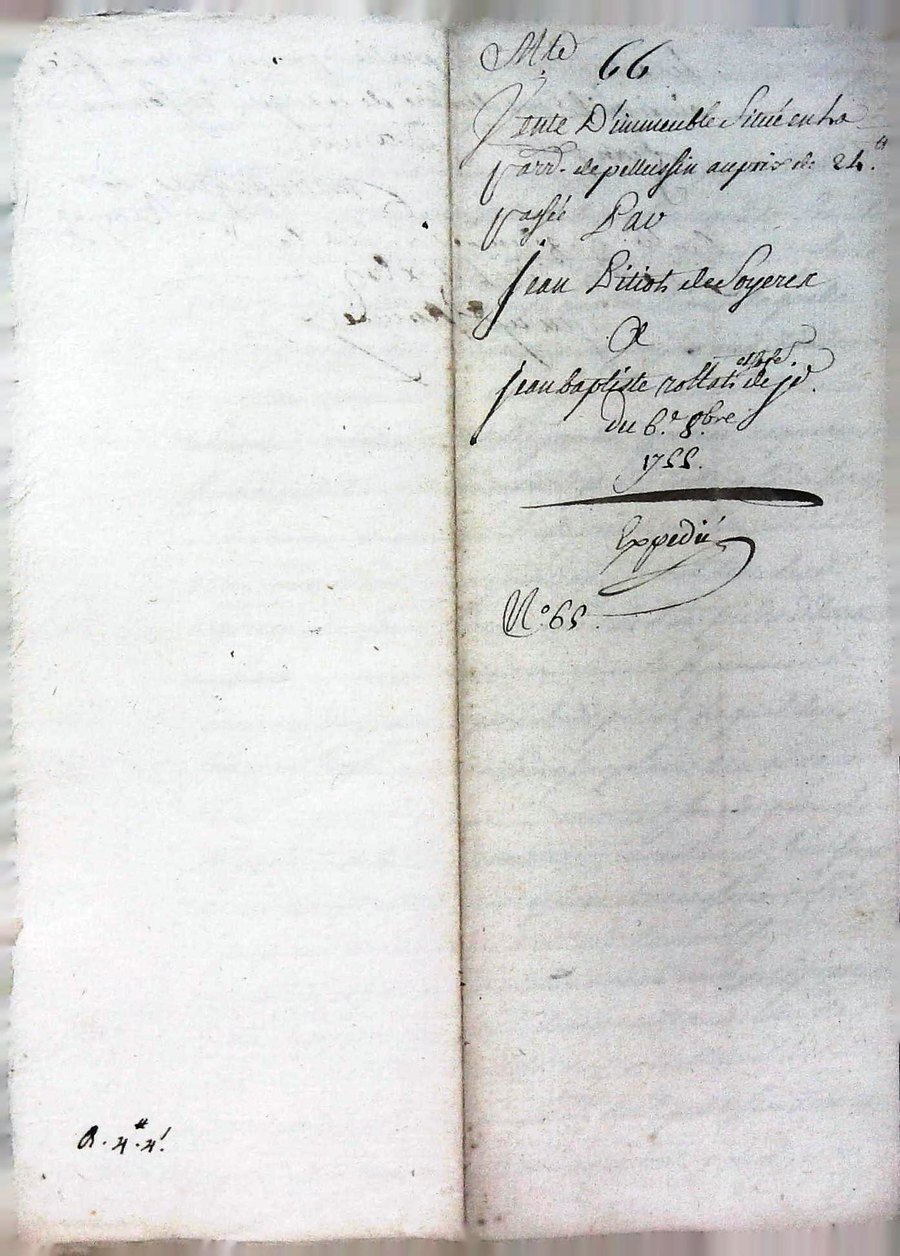 66
Vente D'immeuble Situé en la
parr. de pellussin au prix de 24.#
passée Par
jean Pitiot de Soyeres
A
jean baptiste rollat de jd.
du 6.e 8.bre
1755.
Expedié
N.o 65.
R. 4.# 4.s